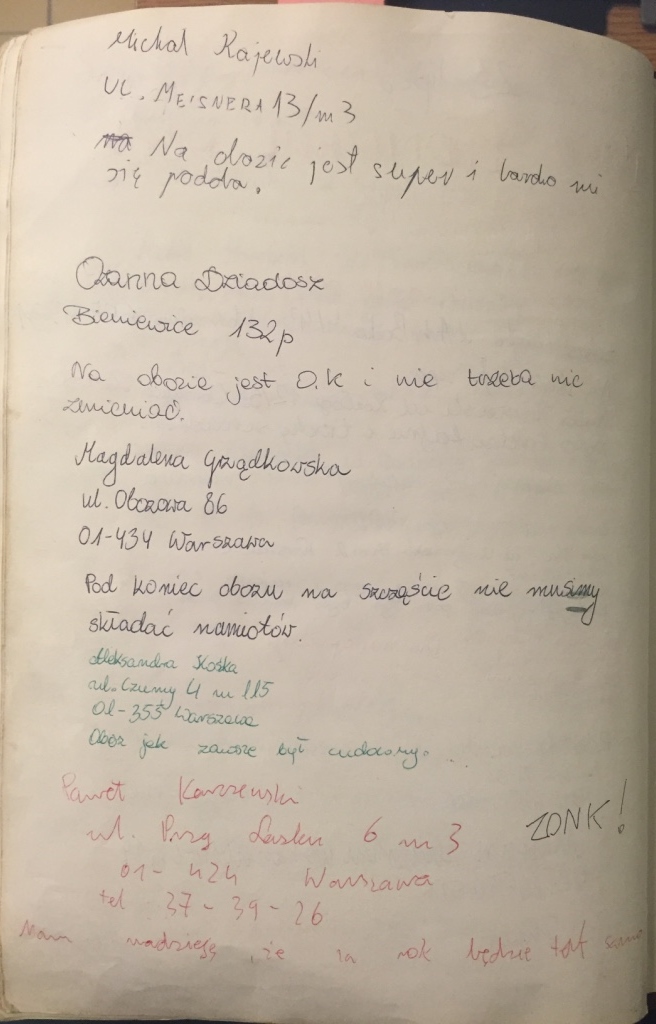 Michał Kajewski
UL. MEISNERA 13/m 3
Na obozie jest super i bardo mi
się podoba.
Ożanna Dziadosz
Bieniewice 132p
Na obozie jest O.K i nie trzeba nic
zmieniać.
Magdalena Grządkowska
ul. Obozowa 86
01-434 Warszawa
Pod koniec obozu na szczęście nie musimy
składać namiotów.
Aleksandra Kośka
ul. Czumy 4 m 115
01-355 Warszawa
Obóz jak zawsze był cudowny...
Paweł Karczewski
ZONK!
ul. Przy Lasku 6 m 3
01-424 Warszawa
tel 37-39-26
Mam nadzieję, że za rok będzie tak samo